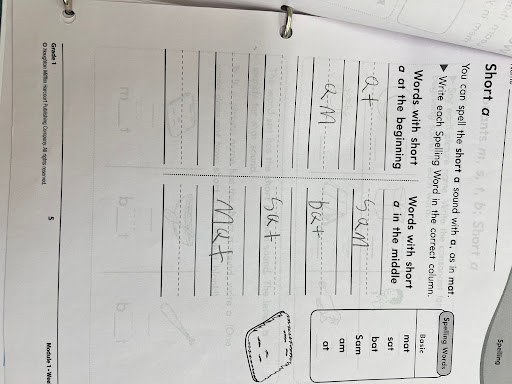 Spelling
Short a
You can spell the short a sound with a, as in mat.
▶ Write each Spelling Word in the correct column.
Words with short
a at the beginning
at
am
Words with short
a in the middle
Sam
bat
Sat
Mat
Spelling Words
Basic
mat
sat
bat
Sam
am
at
m__t
b__t
b__t
Grade 1
© Houghton Mifflin Harcourt Publishing Company. All rights reserved.
5
Module 1